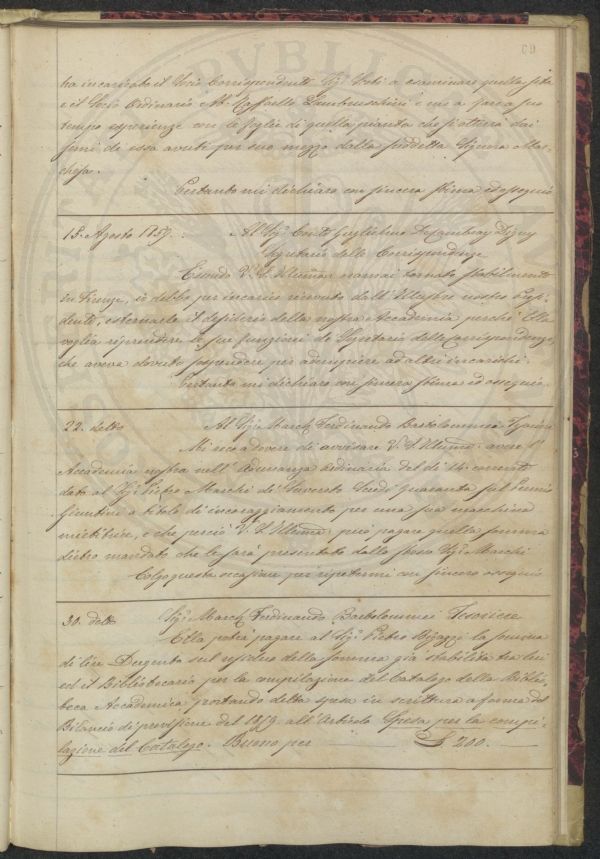 ha incaricato il Socio Corrispondente Sig.r a esaminare quella seta
e il Socio Ordinario M. Raffaello Lambruschini e me a fare a suo
tempo esperienze con le foglie di quella pianta che si otterrà dai
semi di essa avuti per suo mezzo dalla suddetta Signora Mar-
chesa.
Pertanto mi dichiaro con sincera stima ed ossequio
18. Agosto 1859.
Al Sig.r Conte Guglielmo De Cambray Digny
Segretario delle Corrispondenze
Essendo V. S. Ill.ma oramai tornato stabilmente
in Firenze, io debbo per incarico ricevuto dall'Illustre nostro Presi-
dente, esternarle il desiderio della nostra Accademia perchè Ella
voglia riprendere le sue funzioni di Segretario delle corrispondenze,
che aveva dovuto sospendere per adempiere ad altri incarichi.
Pertanto mi dichiaro con sincera stima ed ossequio.
22. detto
Al Sig.r March. Ferdinando Bartolommei Tesoriere
Mi reco a dovere di avvisare V. S. Ill.ma avere l'
Accademia nostra nell'Adunanza ordinaria del dì 14. corrente
dato al Sig.r Pietro Marchi di Suvereto Scudi quaranta sul Premio
Giuntini a titolo di incoraggiamento per una sua macchina
mietitrice, e che perciò V. S. Ill.ma può pagare quella somma
dietro mandato che le sarà presentato dallo stesso Sig.r Marchi
Colgo questa occasione per ripetermi con sincero ossequio
30. detto
Sig.r March. Ferdinando Bartolommei Tesoriere
Ella potrà pagare al Sig.r Pietro la somma
di lire Dugento sul residuo della somma già stabilita tra lui
ed il Bibliotecario per la compilazione del Catalogo della Biblio-
teca Accademica, portando detta spesa in scrittura a forma del
Bilancio di previsione del 1859 all'Articolo Spesa per la compi-
lazione del Catalogo. Buono per £ 200.